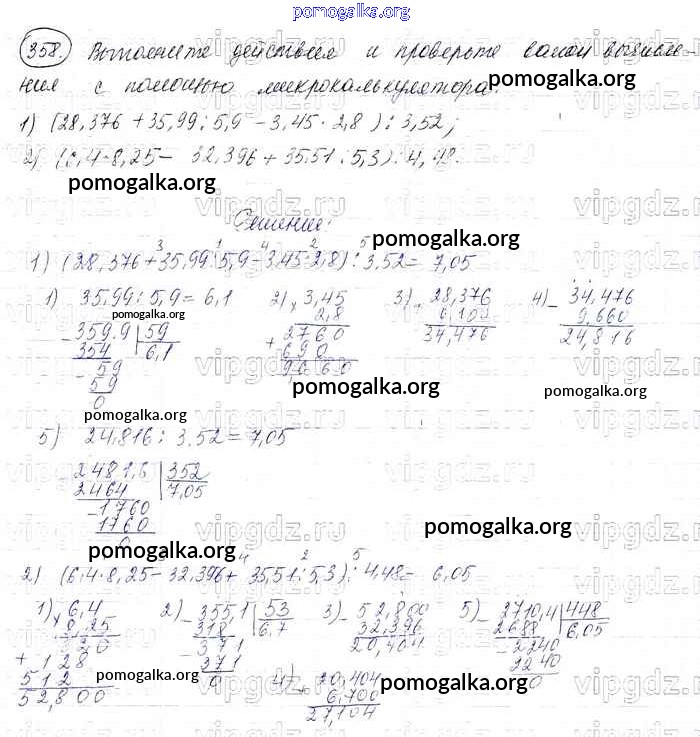 pomogalka.org
358. Выполните действия и проверьте свои вычисле-
ния с помощью микрокалькулятора
pomogalka.org
1) (28,376 + 35,99 : 5,9 - 3,45 · 2,8) : 3,52;
2) (6,4 · 8,25 - 32,396 + 35,51 : 5,3) : 4,48.
pomogalka.org
Решение:
pomogalka.org
3 1 4 2 5
1) (28,376 + 35,99 : 5,9 - 3,45 · 2,8) : 3,52 = 7,05
1) 35,99 : 5,9 = 6,1
pomogalka.org
- 359,9 | 59
354 | 6,1
- 59
59
0
2) x 3,45
2,8
+ 2760
690
9,660
3) - 28,376
6,100
34,476
4) - 34,476
9,660
24,816
pomogalka.org
pomogalka.org
pomogalka.org
5) 24,816 : 3,52 = 7,05
- 2481,6 | 352
2464 | 7,05
- 1760
1760
0
pomogalka.org
pomogalka.org
4 2 5
2) (6,4 · 8,25 - 32,396 + 35,51 : 5,3) : 4,48 = 6,05
1) x 6,4
8,25
320
+ 128
512
52,800
2) - 355,1 | 53
318 | 6,7
- 371
371
0
3) - 52,800
32,396
20,404
4) + 20,404
6,700
27,104
5) - 2710,4 | 448
2688 | 6,05
- 2240
2240
0
pomogalka.org
pomogalka.org
vipgdz.ru